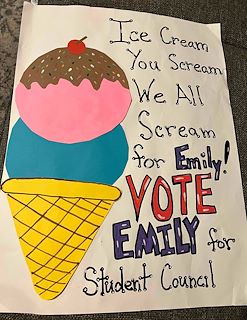 Ice Cream
You Scream
We All
Scream
for Emily!
VOTE
EMILY for
Student Council